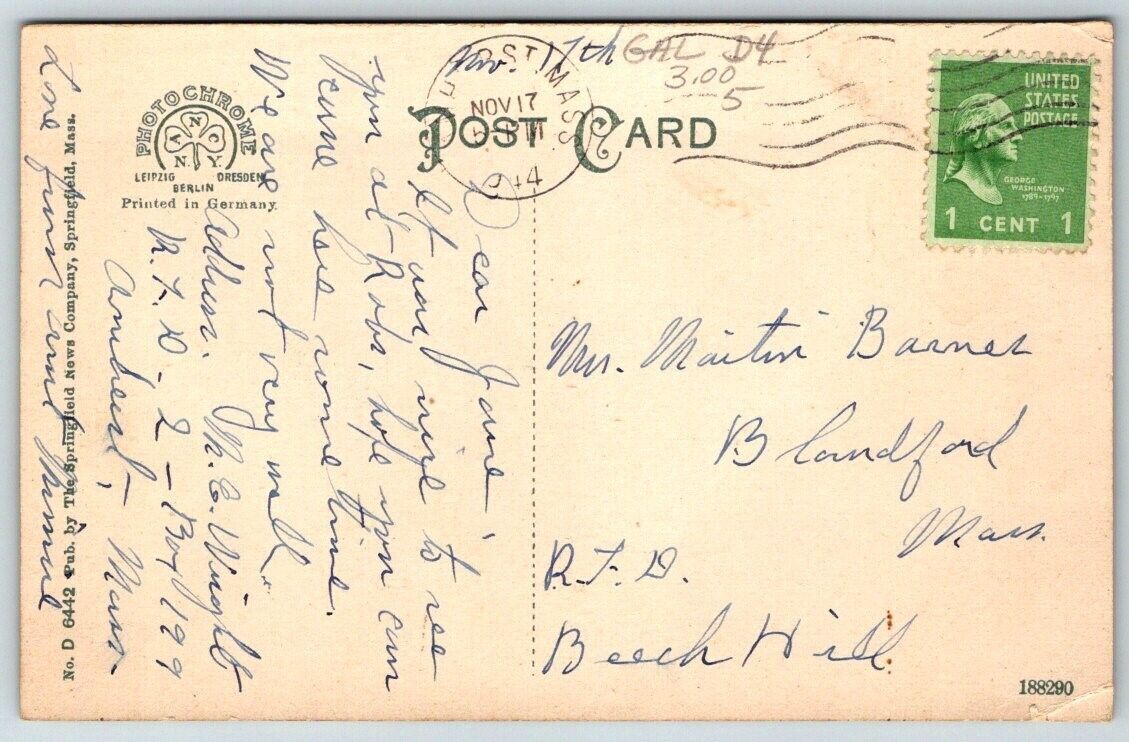 Nov. 17th
GAL D4
3.00
5
NOV 17
MASS.
POST CARD
UNITED
STATES
POSTAGE
GEORGE
WASHINGTON
1789-1797
1 CENT 1
PHOTOCHROME
A N C
N. Y.
LEIPZIG DRESDEN
BERLIN
Printed in Germany.
No. D 6442 Pub. by The Springfield News Company, Springfield, Mass.
Dear Jane
It was nice to see
you at Robs, hope you can
come here some time.
We are not very well.
Address. M. E. Wright
R.F.D - 2 - Box 199
Amherst, Mass.
Love from Aunt Minnie
Mrs. Martin Barnes
Blandford
Mass.
R.F.D.
Beech Hill
188290